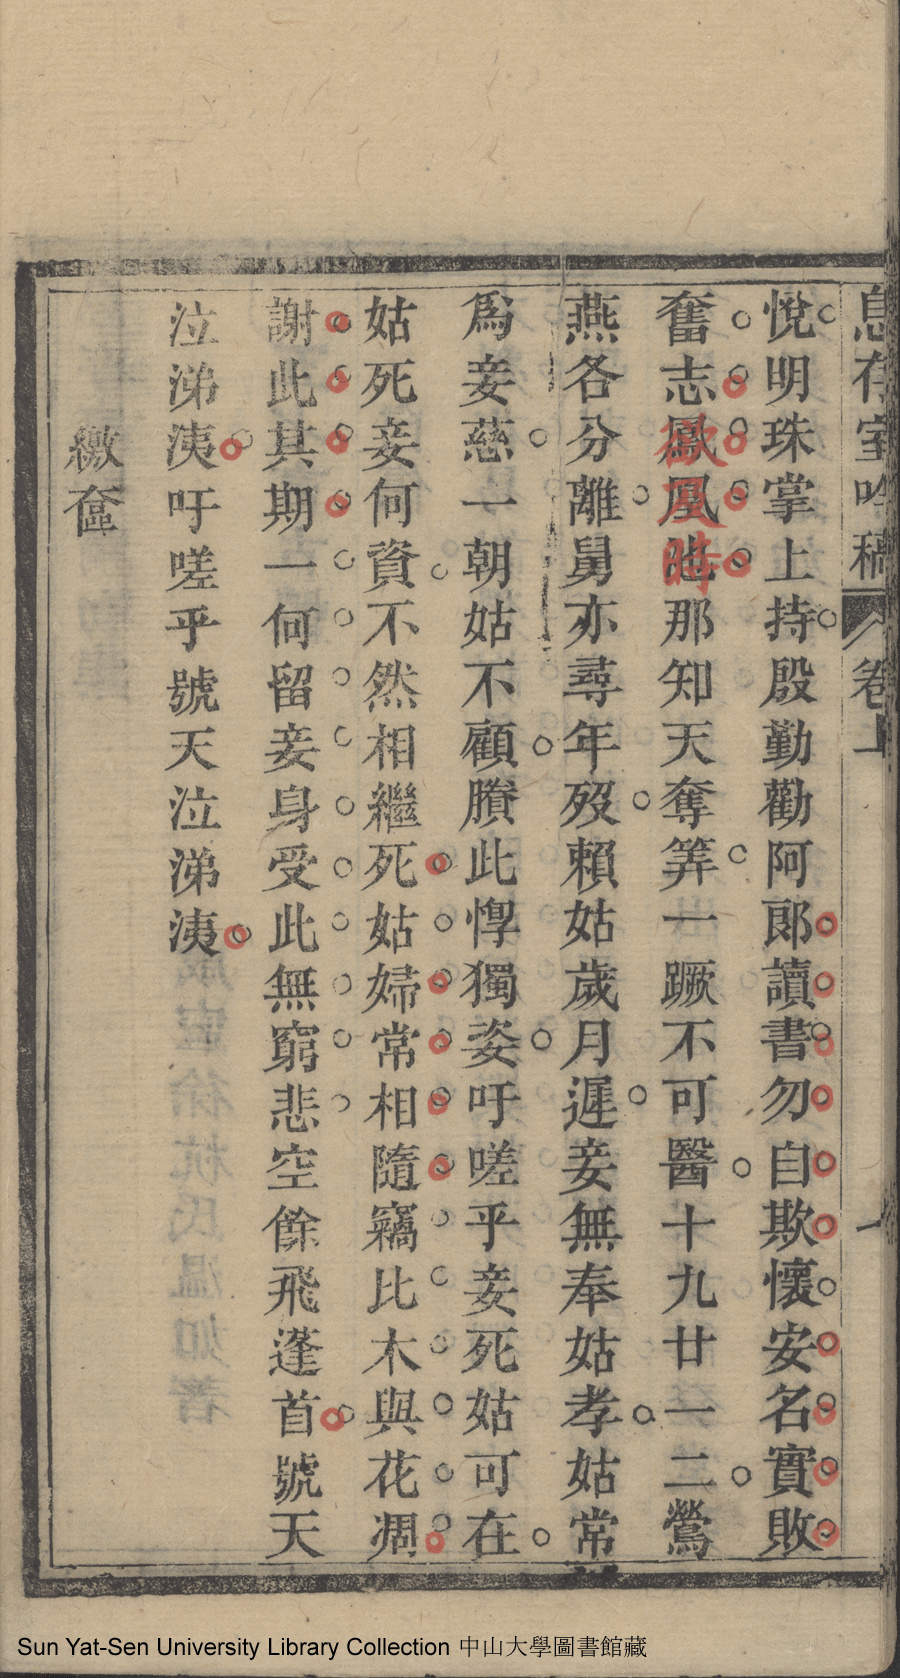 息存室吟稿 卷上 一
悅明珠掌上持殷勤勸阿郎讀書勿自欺懷安名實敗
奮志鳳凰池那知天奪筭一蹶不可醫十九廿一二鶯
欲及時
燕各分離舅亦尋年歿賴姑歲月遲妾無奉姑孝姑常
爲妾慈一朝姑不顧賸此惸獨姿吁嗟乎妾死姑可在
姑死妾何資不然相繼死姑婦常相隨竊比木與花凋
謝此其期一何留妾身受此無窮悲空餘飛蓬首號天
泣涕洟吁嗟乎號天泣涕洟
繳奩
Sun Yat-Sen University Library Collection 中山大學圖書館藏